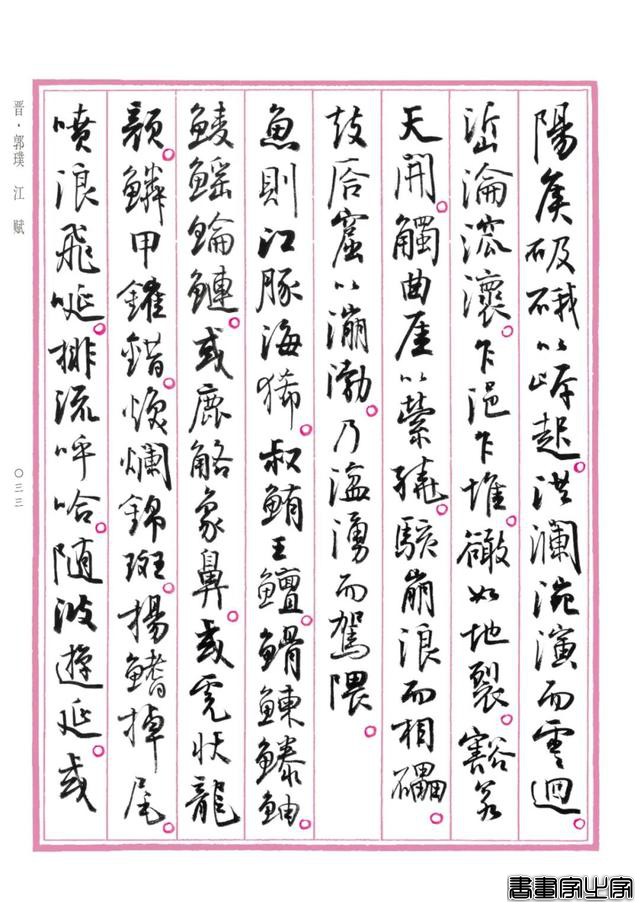 陽侯砐硪以岸起。洪瀾涴演而雲迴。
峾淪溛瀤。乍浥乍堆。豃如地裂。豁若
天開。觸曲厓以縈繞。駭崩浪而相礧。
鼓㕎窟以漰渤。乃湓湧而駕隈。
魚則江豚海狶。叔鮪王鱣。䱻鰊鰧鮋。
鯪鰩鯩鰱。或鹿觡象鼻。或虎狀龍
顏。鱗甲鏙錯。煥爛錦斑。揚鰭掉尾。
噴浪飛唌。排流呼哈。隨波遊延。或
晋·郭璞 江赋
〇三三
書畫家之家